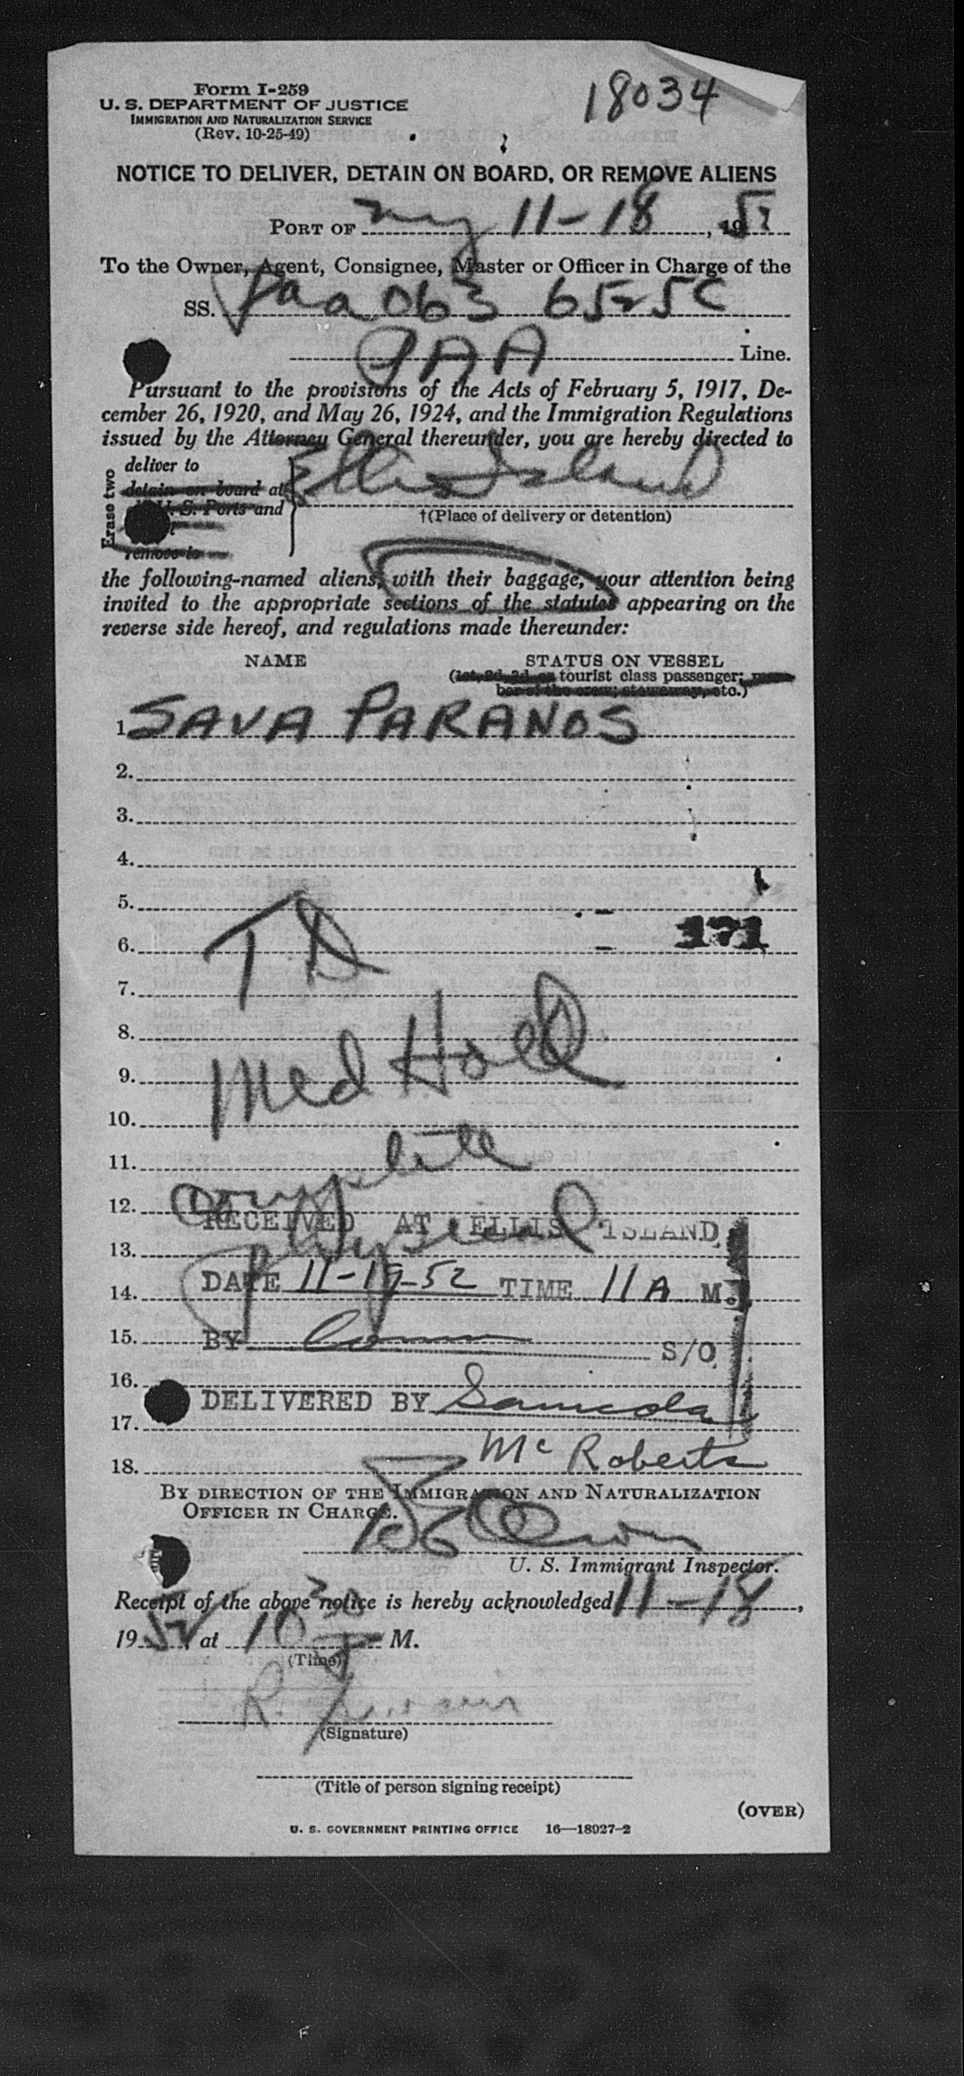 18034
Form I-259
U. S. DEPARTMENT OF JUSTICE
IMMIGRATION AND NATURALIZATION SERVICE
(Rev. 10-25-49)
NOTICE TO DELIVER, DETAIN ON BOARD, OR REMOVE ALIENS
PORT OF ny 11-18, 1952
To the Owner, Agent, Consignee, Master or Officer in Charge of the
SS. Paa 063 6525C
PAA Line.
Pursuant to the provisions of the Acts of February 5, 1917, De-
cember 26, 1920, and May 26, 1924, and the Immigration Regulations
issued by the Attorney General thereunder, you are hereby directed to
Erase two
deliver to
detain on board at Ellis Island
U. S. Ports and
†(Place of delivery or detention)
remove to
the following-named aliens, with their baggage, your attention being
invited to the appropriate sections of the statutes appearing on the
reverse side hereof, and regulations made thereunder:
NAME STATUS ON VESSEL
(1st, 2d, 3d, or tourist class passenger; mem-
ber of the crew; stowaway, etc.)
1. SAVA PARANOS
2.
3.
4.
5.
6. 171
TD
7.
8.
Med Hold
9.
10.
11.
complete
12.
RECEIVED AT ELLIS ISLAND
physical
13.
DATE 11-19-52 TIME 11 A M.
14.
15.
BY S/O
16.
DELIVERED BY
17.
McRoberts
18.
BY DIRECTION OF THE IMMIGRATION AND NATURALIZATION
OFFICER IN CHARGE.
U. S. Immigrant Inspector.
Receipt of the above notice is hereby acknowledged 11-18,
1952 at 10 30 P M.
(Time)
R.
(Signature)
(Title of person signing receipt)
(OVER)
U. S. GOVERNMENT PRINTING OFFICE 16—18027-2